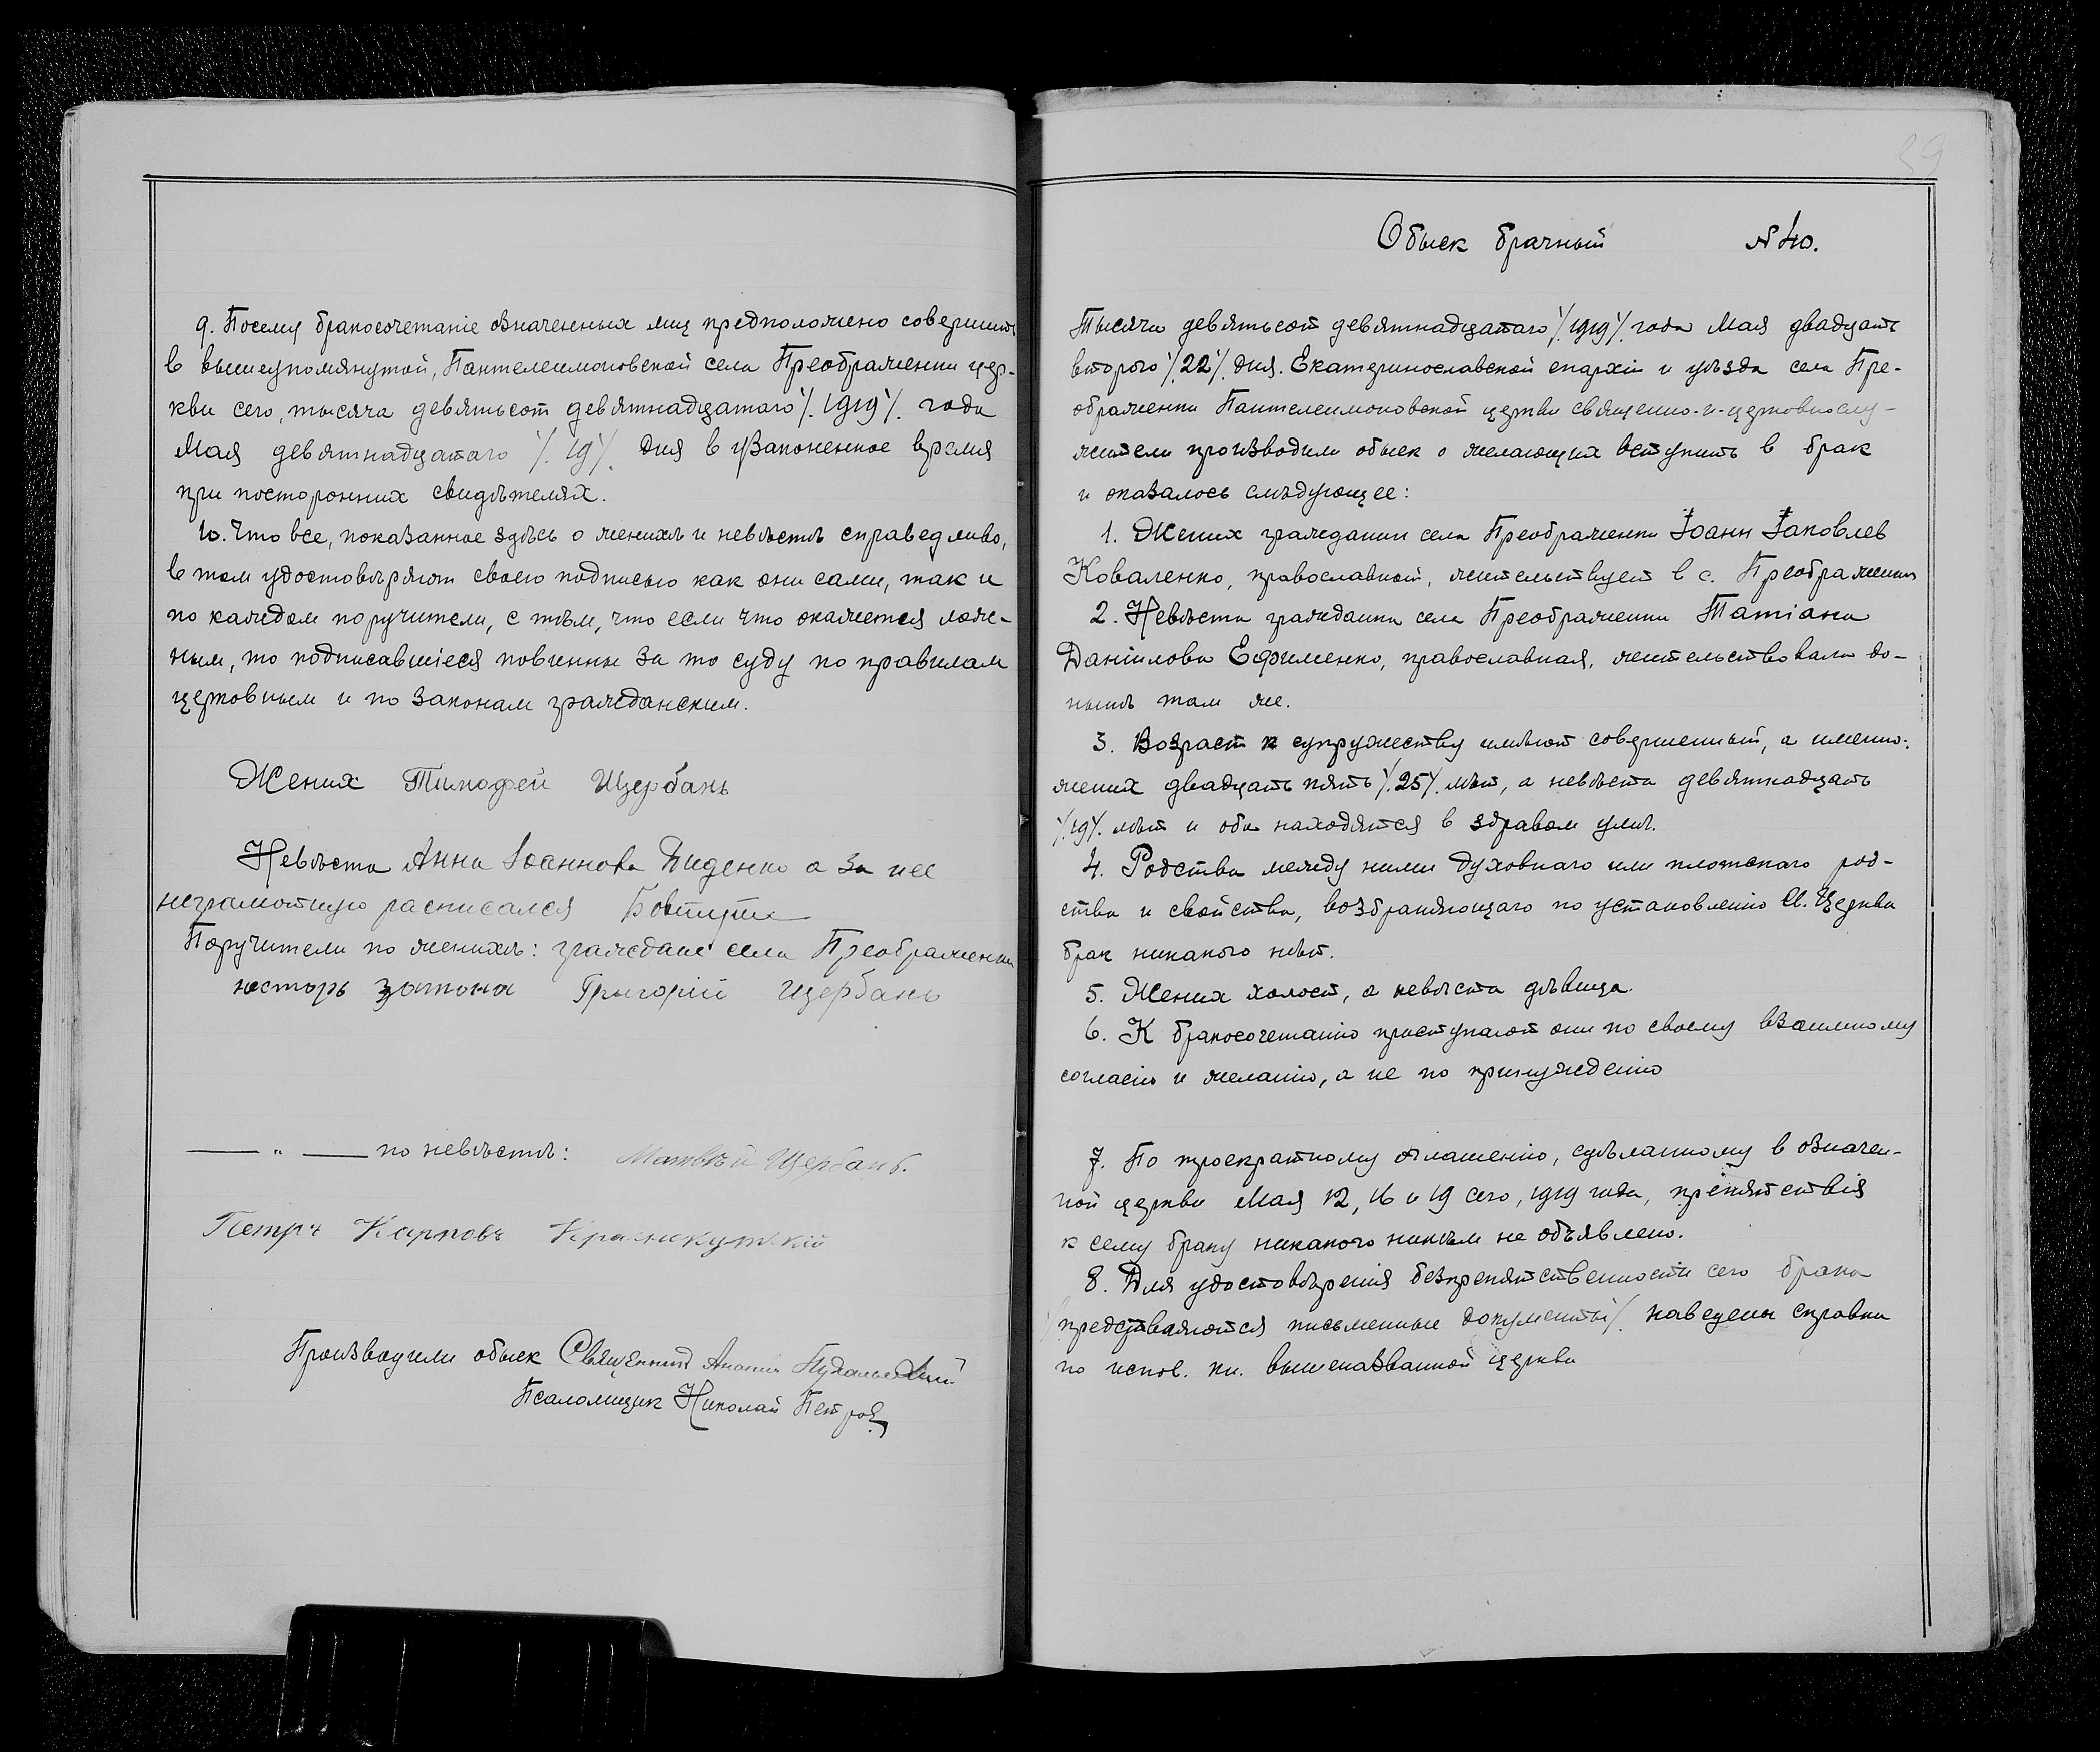 9. Посему бракосочетаніе означенных лиц предположено совершить
в вышеупомянутой, Пантелеимоновской села Преображенки цер-
кви сего, тысяча девятьсот девятнадцатаго /.1919/. года
Мая девятнадцатаго /.19/. дня в узаконенное время
при посторонних свидѣтелях.
10. Что все, показанное здѣсь о женихѣ и невѣстѣ справедливо,
в том удостовѣряют своею подписью как они сами, так и
по каждом поручители, с тѣм, что если что окажется лож-
ным, то подписавшіеся повинны за то суду по правилам
церковным и по законам гражданским.
Жених Тимофей Щербань
Невѣста Анна Іоаннова Диденко а за нее
неграмотную расписался
Поручители по женихѣ: граждане села Преображенки
несторь Григорій Щербань
— " — по невѣстѣ: Матвѣй Щербань.
Петръ Карповъ Краснокутскій
Производили обыск Священник
Псаломщик Николай Петров
39
Обыск брачный № 40.
Тысяча девятьсот девятнадцатаго /.1919/. года Мая двадцать
второго /.22/. дня. Екатеринославской епархіи и уѣзда села Пре-
ображенки Пантелеимоновской церкви священно-и-церковнослу-
жители производили обыск о желающих вступить в брак
и оказалось слѣдующее:
1. Жених гражданин села Преображенки Іоанн Іаковлев
Коваленко, православный, жительствует в с. Преображенки
2. Невѣста гражданка села Преображенки Татіана
Даніилова Ефименко, православная, жительствовала до-
нынѣ там же.
3. Возраст к супружеству имѣют совершенный, а именно:
жених двадцать пять /.25/. лѣт, а невѣста девятнадцать
/.19/. лѣт и оба находятся в здравом умѣ.
4. Родства между ними духовнаго или плотскаго род-
ства и свойства, возбраняющаго по установленію Св. Церкви
брак никакого нѣт.
5. Жених холост, а невѣста дѣвица.
6. К бракосочетанію приступают они по своему взаимному
согласію и желанію, а не по принужденію
7. По троекратному оглашенію, сдѣланному в означен-
ной церкви Мая 12, 16 и 19 сего, 1919 года, препятствія
к сему браку никакого никѣм не объявлено.
8. Для удостовѣренія безпрепятственности сего брака
представляются письменные документы/. наведены справки
по испов. кн. вышеназванной церкви